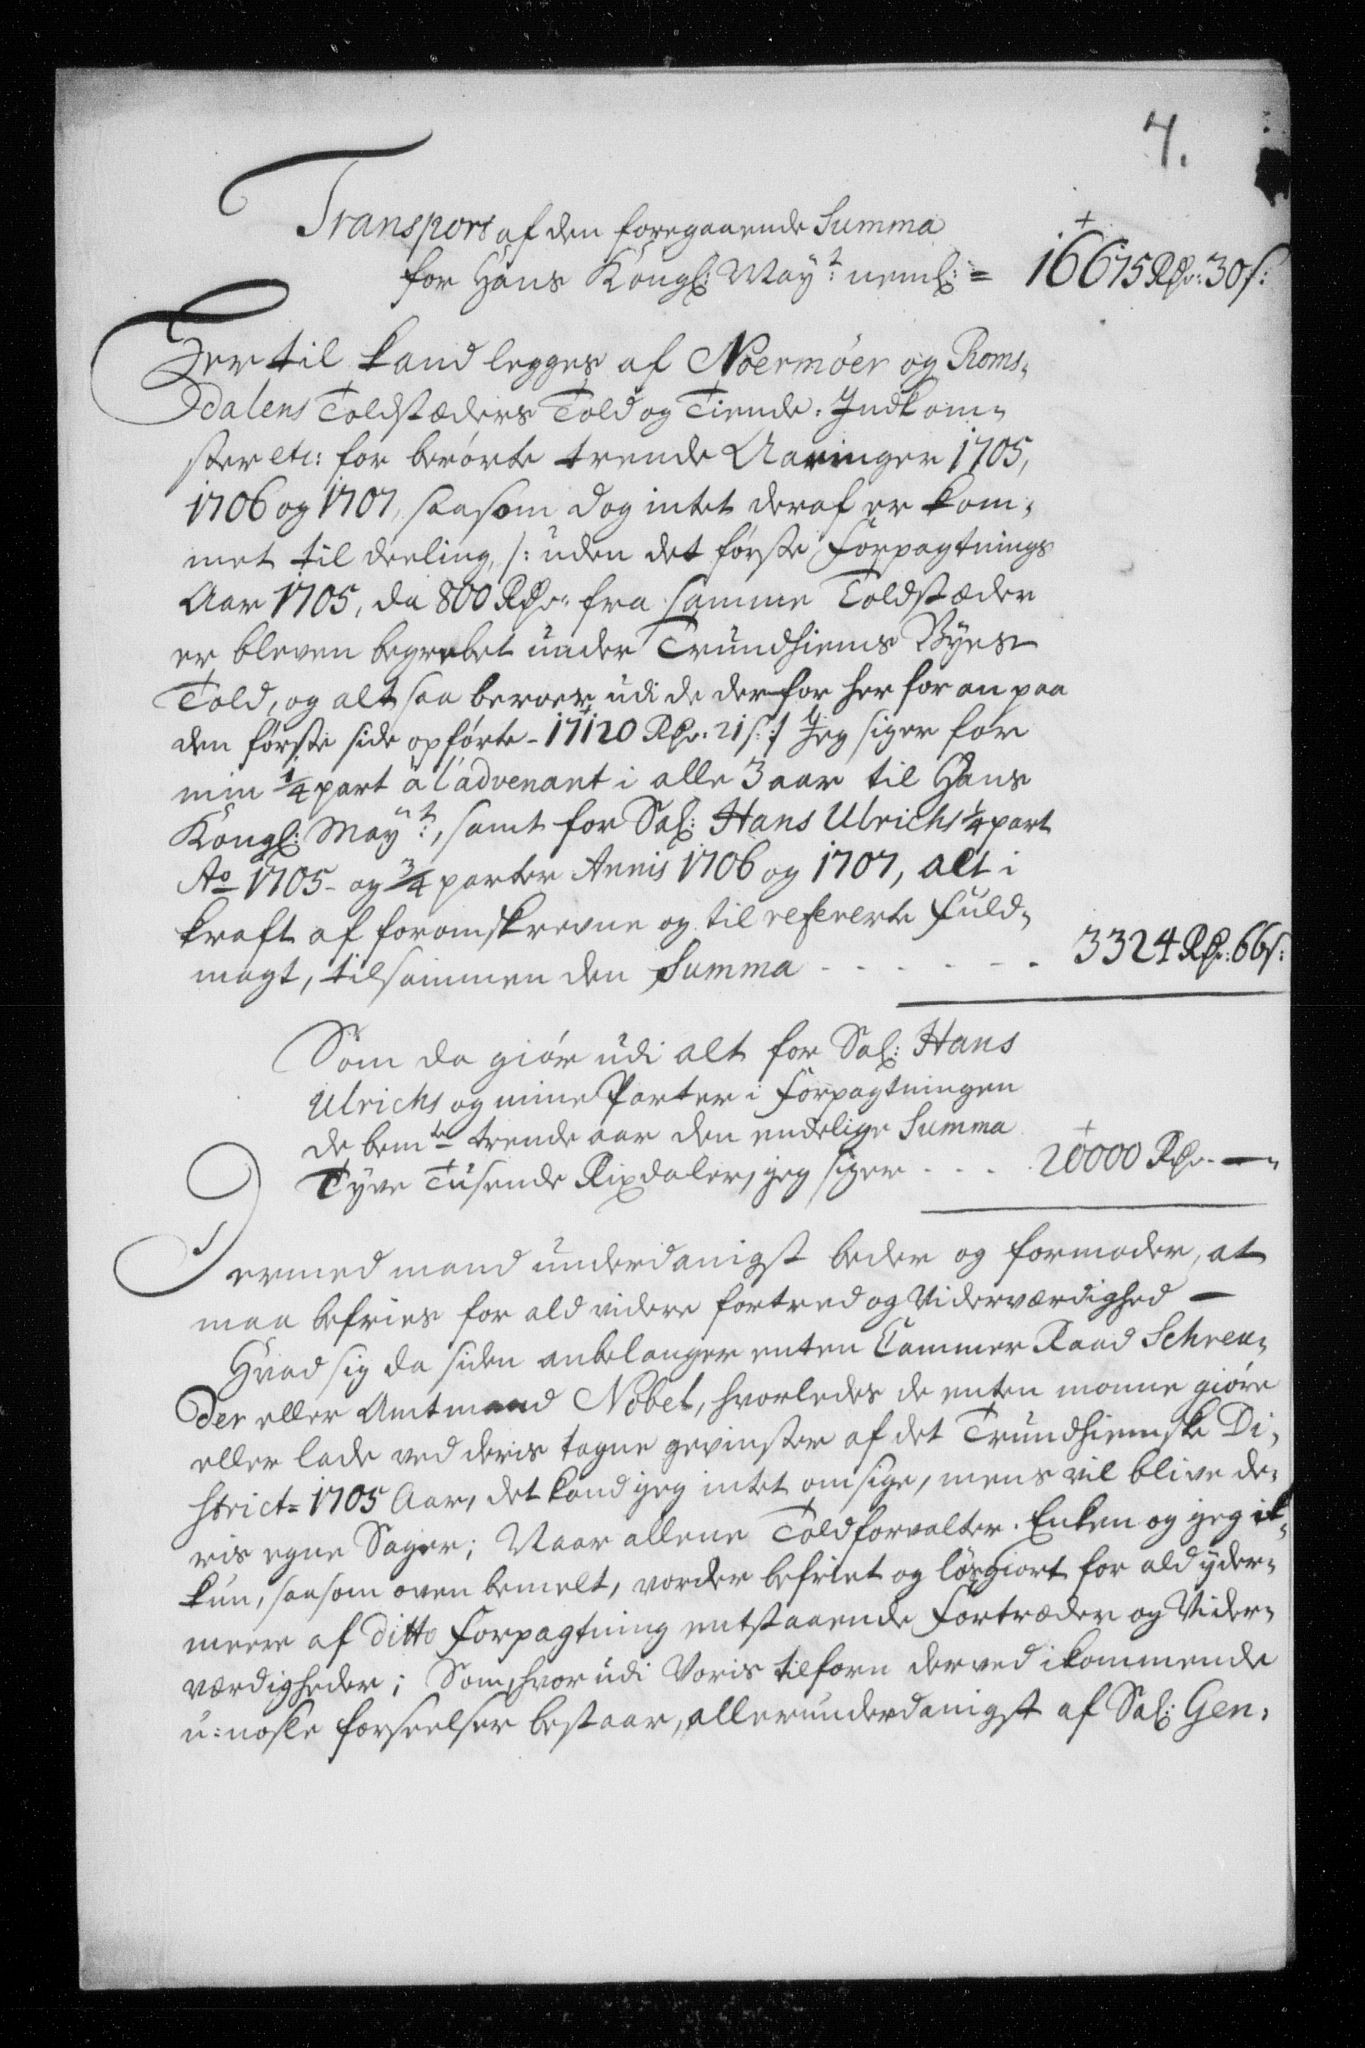 4.
Transport af den foregaaende Summa
for Hans Kongl: Mayt: neml: = 16675 Rdr: 30 s:
Her til kand legges af Noermöer og Roms-
dalens Toldstæders Told og Tiende-Indkom-
ster etc: for berörte trende Aaringer 1705,
1706 og 1707, saasom dog intet deraf er kom-
met til deeling, /: uden det förste Forpagtnings
Aar 1705, da 800 Rdr: fra samme Toldstæder
er bleven begrebet under Trundhiems Byes
Told, og alt saa beroer udi de derfor her for an paa
den förste side opförte - 17120 Rdr: 21 s: :/ Jeg siger for
min 1/4 part à l'advenant i alle 3 aar til Hans
Kongl: Mayt:, samt for Sal: Hans Ulrichs 1/4 part
Ao 1705 - og 3/4 parter Annis 1706 og 1707, alt i
kraft af foromskrevne og til refererte Fuld-
magt, tilsammen den Summa - - - - - - 3324 Rdr: 66 s:
Som da giör udi alt for Sal: Hans
Ulrichs og mine Parter i Forpagtningen
de bemte trende aar den endelige Summa
Tyve Tusende Rixdaler, jeg siger - - - - 20000 Rdr. —
Dermed mand underdanigst beder og formoder, at
maa befries for ald videre fortred og Viderværdighed —
Hvad sig da siden anbelanger enten Cammer Raad Schreu-
der eller Amtmand Nobel, hvorledes de enten monne giöre
eller lade ved deris tagne gevinster af det Trundhiemske Di-
strict = 1705 Aar, det kand jeg intet om sige, mens vil blive de-
ris egne Sager; Naar allene Toldforvalter-Enken og jeg ik-
kun, saasom oven bemelt, vorder befriet og lösgiort for ald yder-
meere af ditto Forpagtning entstaaende Fortræder og Vider-
værdigheder; Som, hvor udi Voris tilforn derved ikommende
u-noske forseelser bestaar, allerunderdanigst af Sal: Gen-